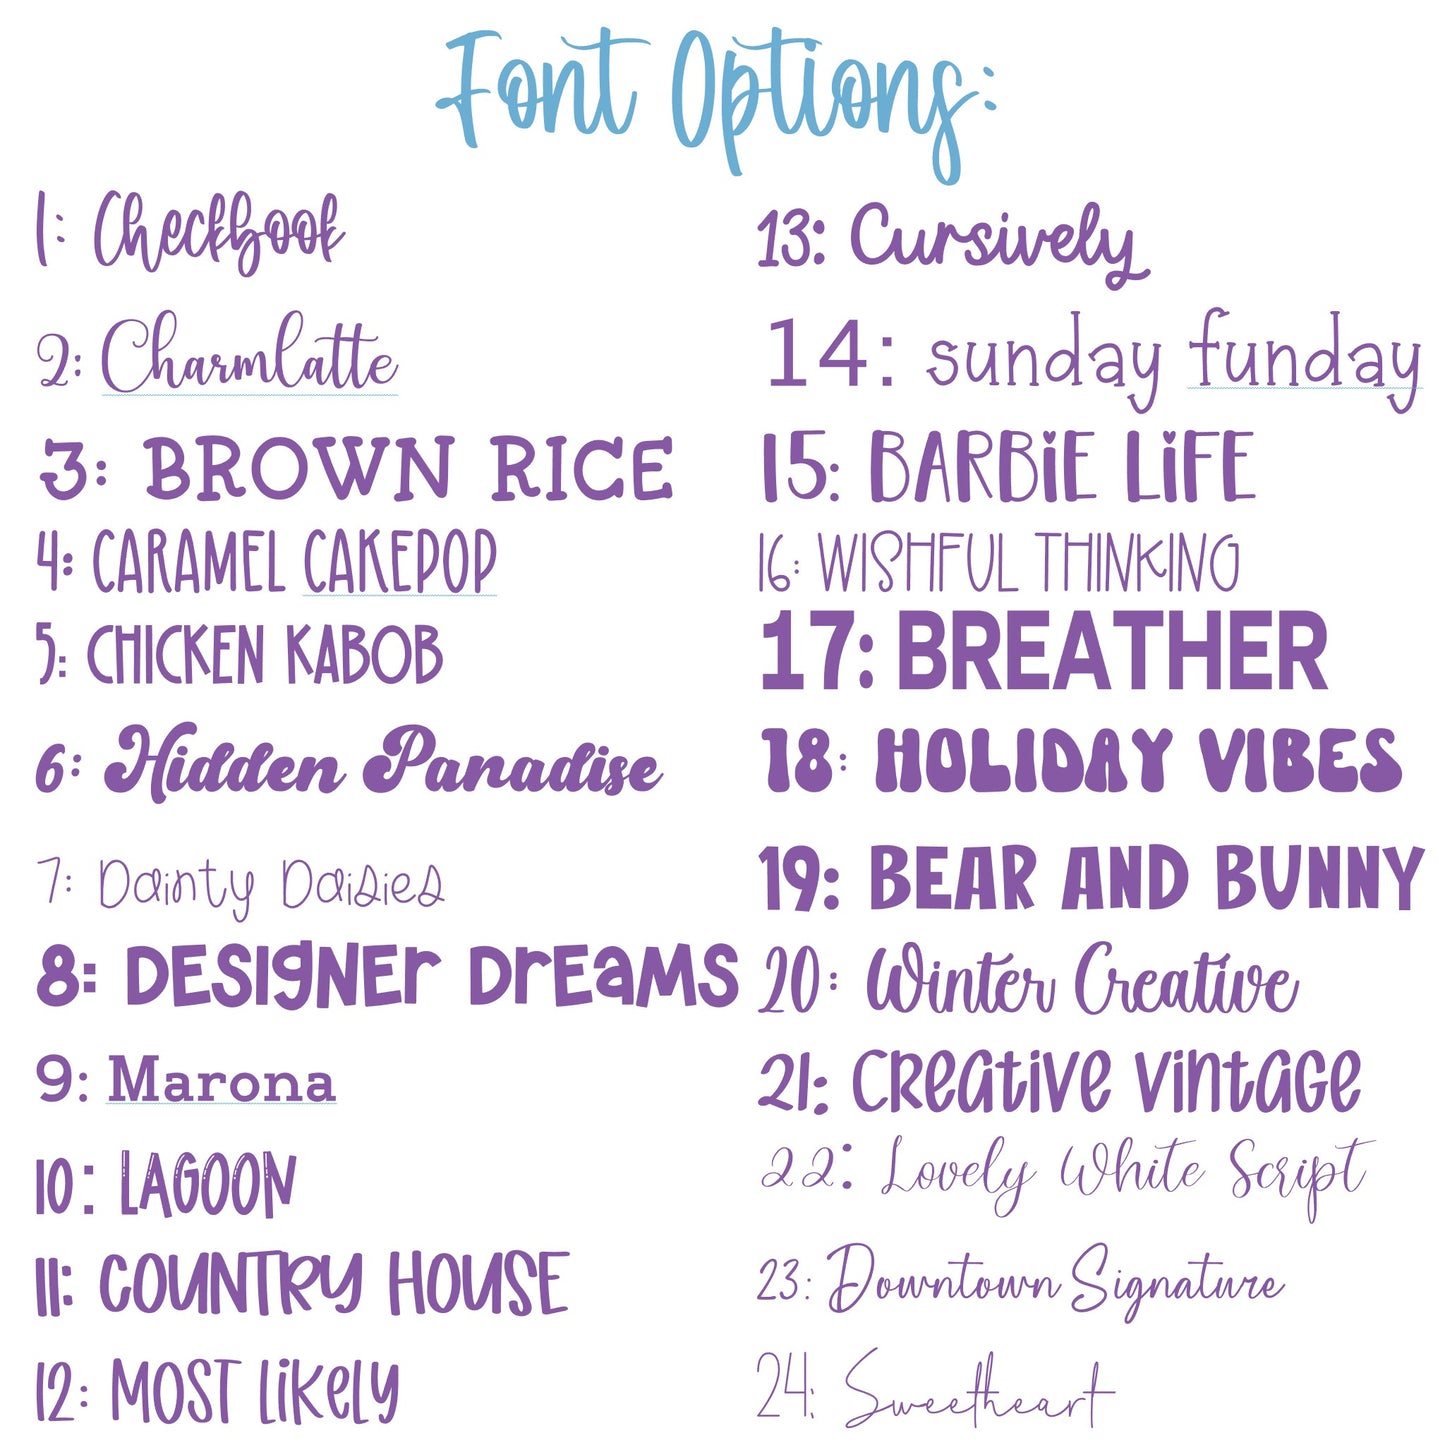 Font Options:
1: Checkbook
2: Charmlatte
3: BROWN RICE
4: CARAMEL CAKEPOP
5: CHICKEN KABOB
6: Hidden Paradise
7: Dainty Daisies
8: DESIGNER DREAMS
9: Marona
10: LAGOON
11: COUNTRY HOUSE
12: MOST LIKELY
13: Cursively
14: sunday funday
15: BARBIE LIFE
16: WISHFUL THINKING
17: BREATHER
18: HOLIDAY VIBES
19: BEAR AND BUNNY
20: Winter Creative
21: CREATIVE VINTAGE
22: Lovely White Script
23: Downtown Signature
24: Sweetheart